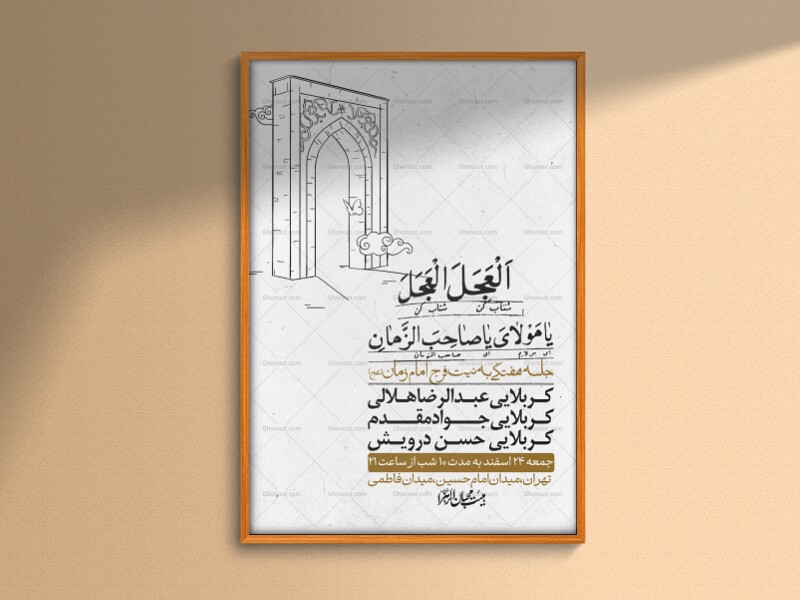 اَلْعَجَلَ الْعَجَلَ
شتاب کن شتاب کن
یا مَوْلایَ یا صاحِبَ الزَّمانِ
ای مولایم ای صاحب الزمان
جلسه هفتگی به نیت فرج امام زمان (عج)
کربلایی عبدالرضا هلالی
کربلایی جواد مقدم
کربلایی حسن درویش
جمعه ۲۴ اسفند به مدت ۱۰ شب از ساعت ۲۱
تهران، میدان امام حسین، میدان فاطمی
هیئت محبان الزهرا
Ghonoot.com